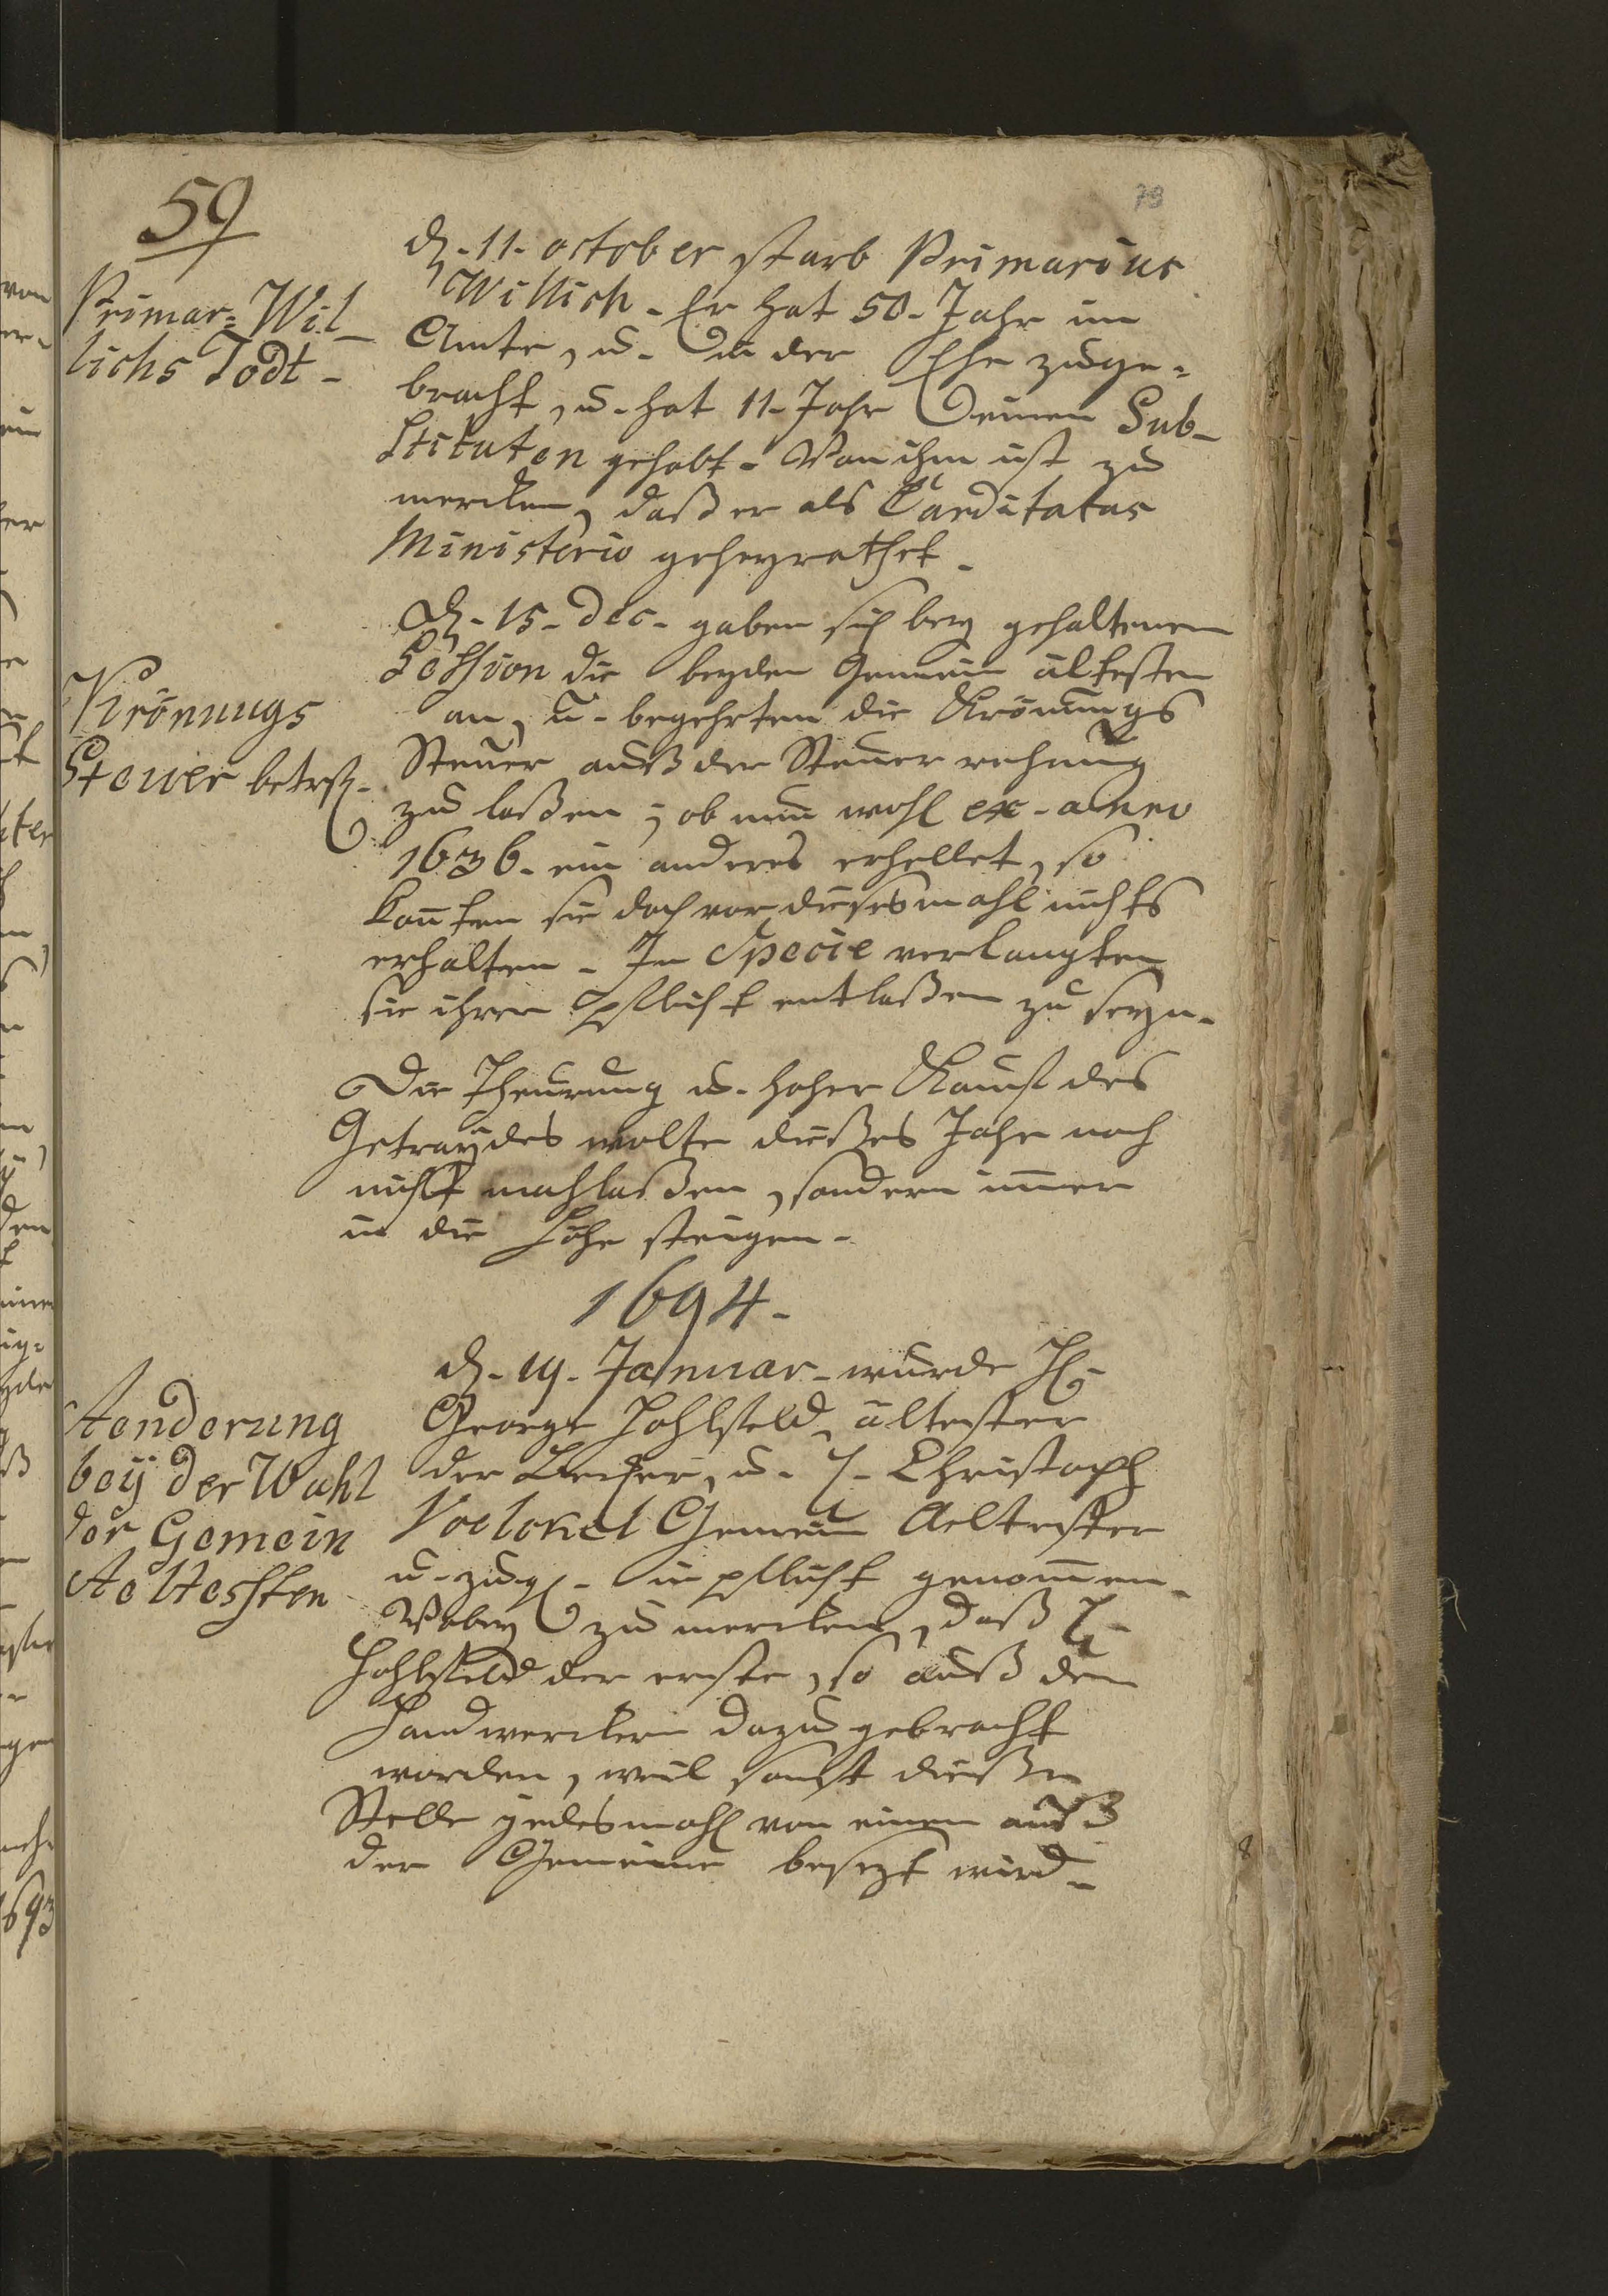 59
78
Primar= Wil
lichs Todt.
d. 11. october starb Primarius
Willich. Er hat 50. Jahr im
Amte, u. in der Ehe zuge=
bracht, u. hat 11. Jahr einen Sub-
stituten gehabt. Von ihm ist zu
mercken, daß er als Canditatus
Ministerio geheyrathet.
Krönungs
Steuer betrf.
d. 15. Dec. gaben sich bey gehaltenem
Session die beyden Gemein ältesten
an, u. begehrten die Krönungs
Steuer auß der Steuer rechnung
zu laßen; ob nun wohl ex anno
1636. ein anderes erhellet, so
konten sie doch vor diesesmahl nichts
erhalten. In Specie verlangten
sie ihrer Pflicht entlaßen zu seyn.
Die Theurung u. hoher Kauf des
Getraydes wolte dießes Jahr noch
nicht nachlaßen, sondern immer
in die Höhe steigen.
1694.
Aenderung
bey der Wahl
der Gemein
Aeltesten
d. 19. Januar. wurde H.
George Hohlfeld, ältester
der Becker, u. H. Christoph
Voelckel Gemein Aeltester
u. zugl. in pflicht genommen.
Wobey zu mercken, daß H.
Hohlfeld der erste, so auß den
Handwerckern dazu gebracht
worden, weil sonst dieße
Stelle jedesmahl von einem auß
der Gemeine besezt wird.